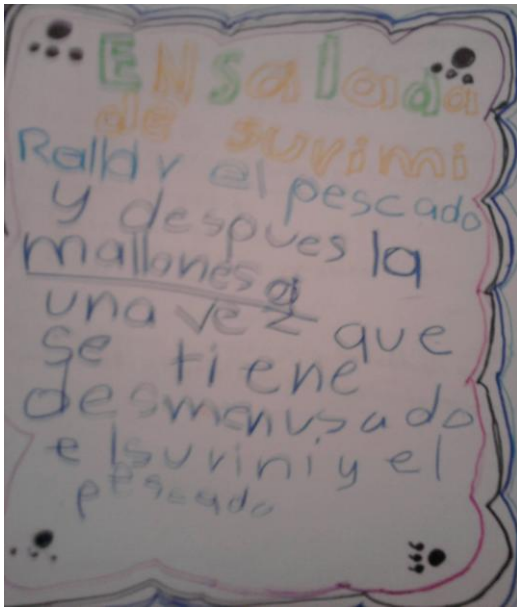 ENSalada
de surimi
Rallar el pescado
y despues la
mallonesa
una vez que
se tiene
desmenusado
el surini y el
pescado